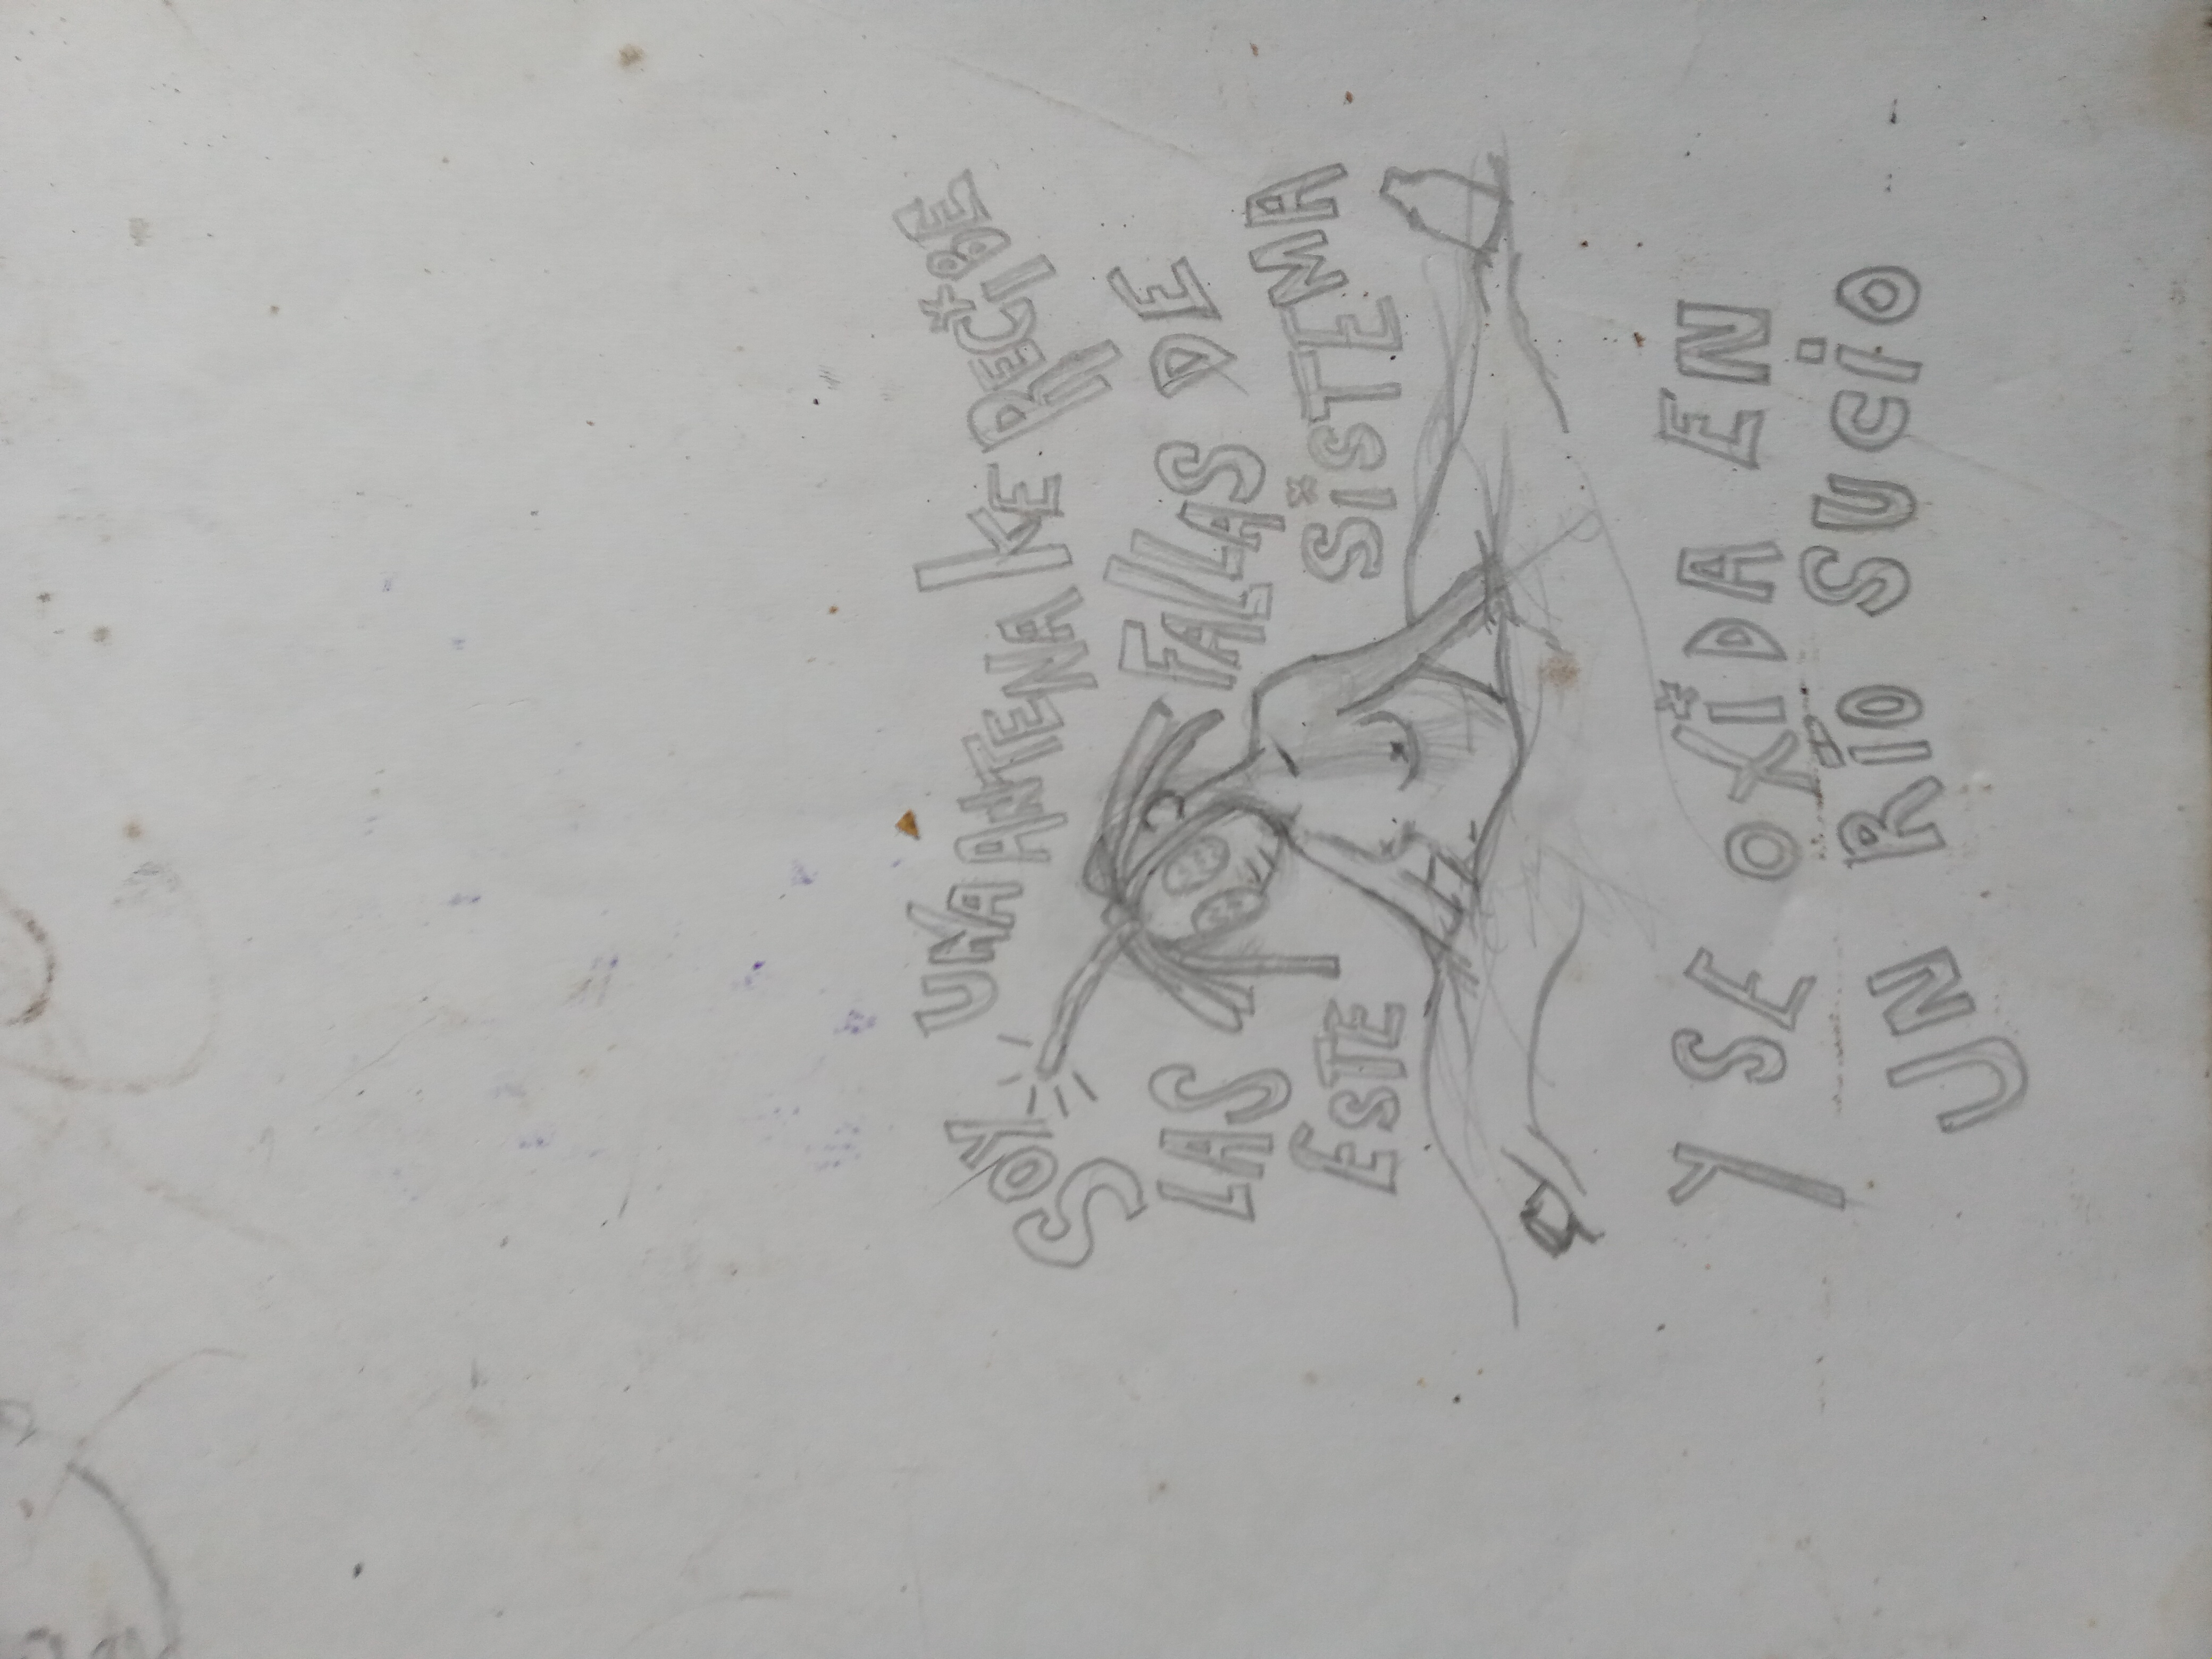 SOY UNA ANTENA KE RECIBE
LAS FALLAS DE
ESTE SISTEMA
Y SE OXIDA EN
UN RÍO SUCIO